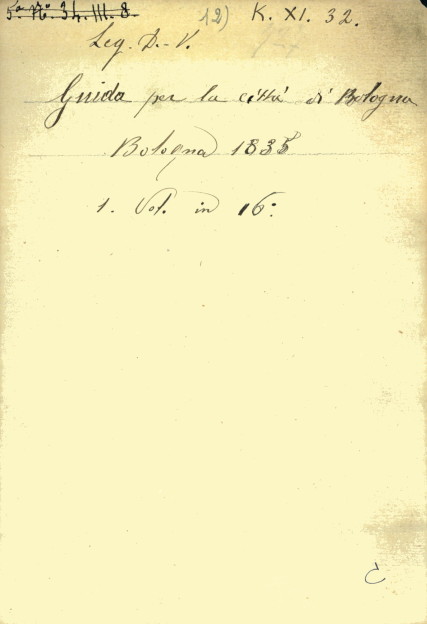 5ª Nº 34. III. 8. 12) K. XI. 32.
Leg. D.-V.
Guida per la città di Bologna
Bologna 1835
1. Vol. in 16: